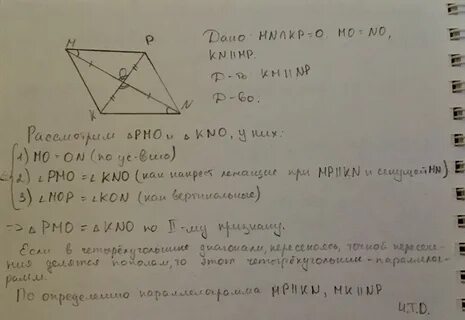 M P
Дано: MN∩KP=O. MO=NO,
KN||MP.
Д-ть KM||NP
Д-во.
O
K N
Рассмотрим △PMO и △KNO, у них:
1) MO=ON (по ус-вию)
2) ∠PMO=∠KNO (как накрест лежащие при MP||KN и секущей MN)
3) ∠MOP=∠KON (как вертикальные)
⇒ △PMO=△KNO по II-му признаку.
Если в четырёхугольнике диагонали, пересекаясь, точкой пересече-
ния делятся пополам, то этот четырёхугольник-параллело-
грамм.
По определению параллелограмма MP||KN, MK||NP
Ч.Т.Д.